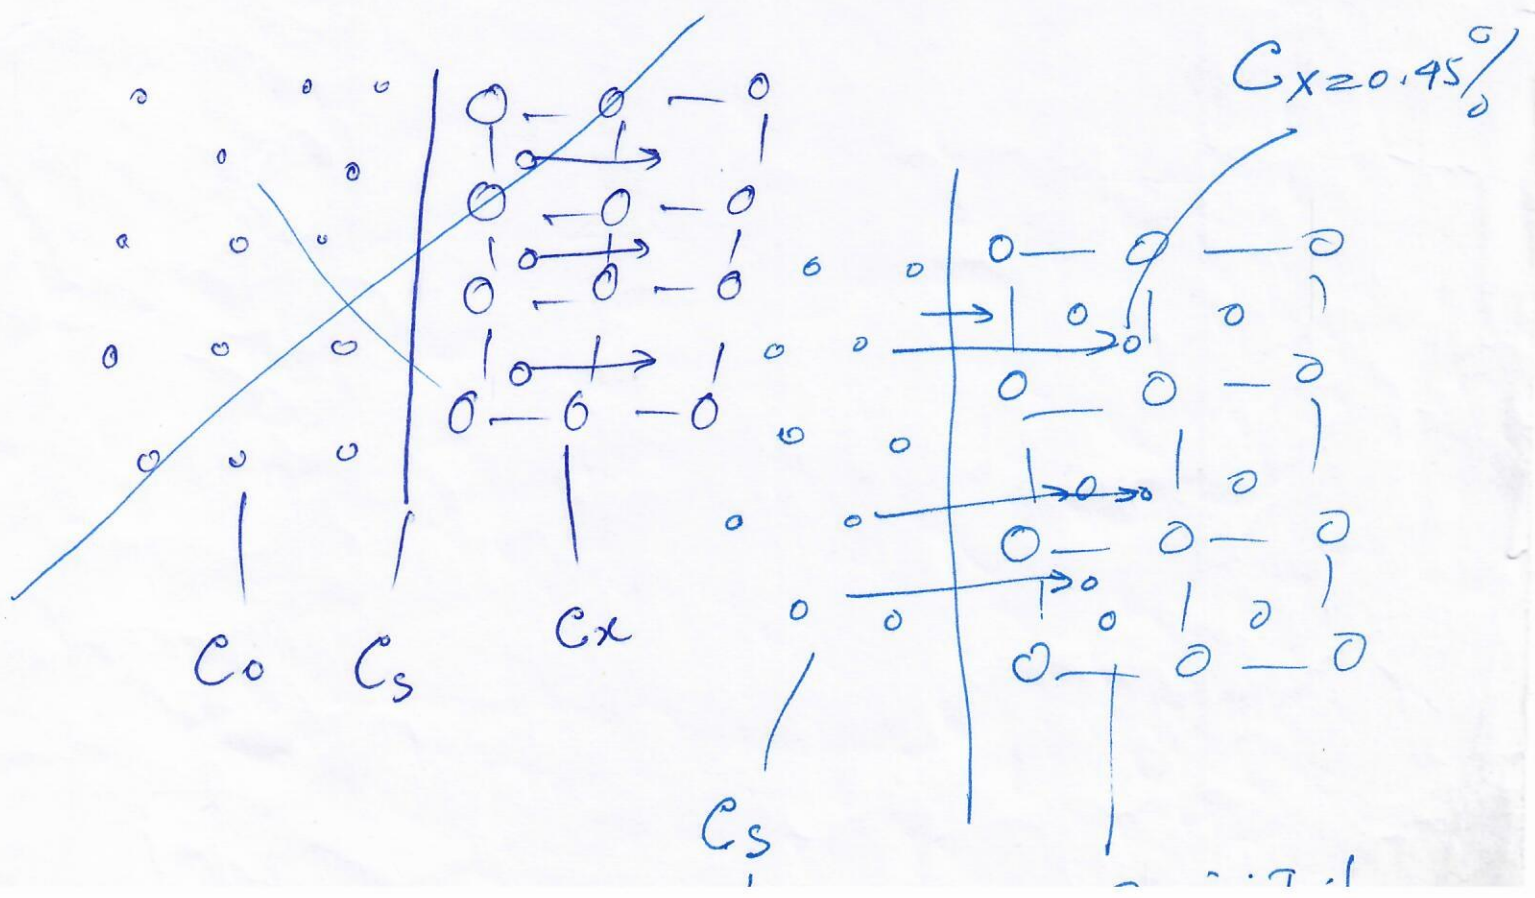 Cx=0.45%
Co
Cs
Cx
Cs